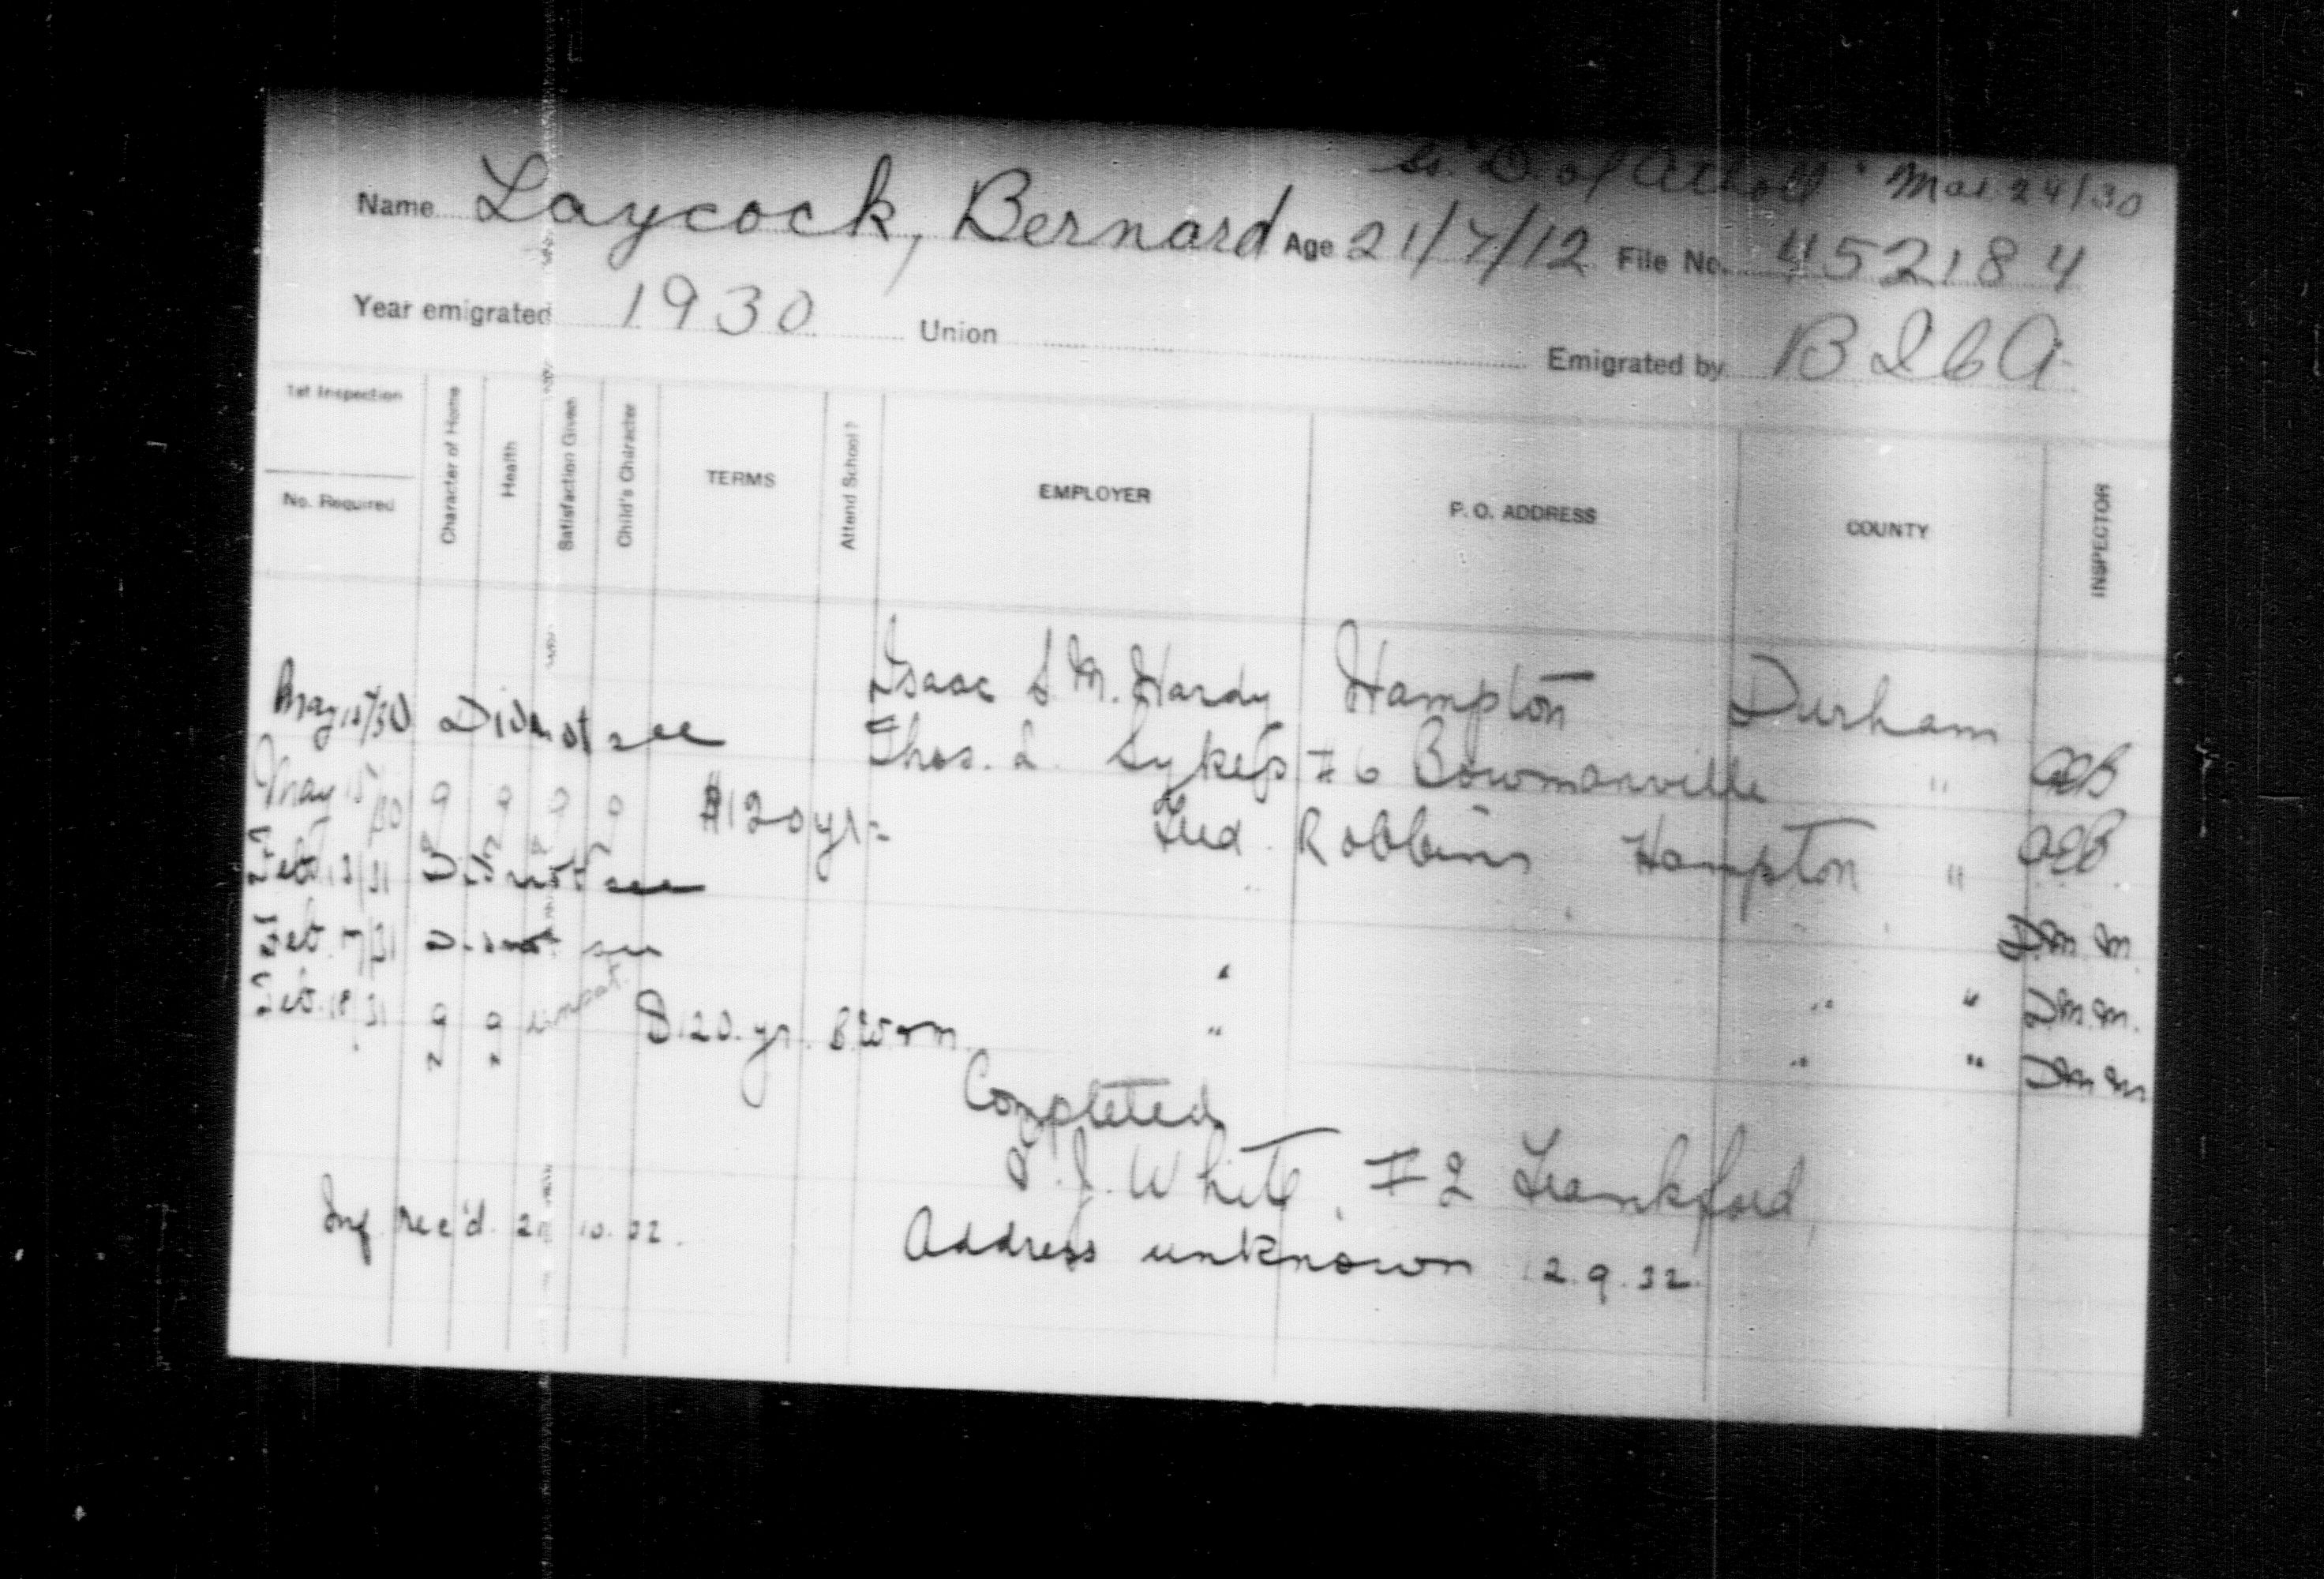 SS. "D. of Atholl" Mar 24/30
Name Laycock, Bernard Age 21/7/12 File No. 452184
Year emigrated 1930 Union Emigrated by B I & A
1st Inspection
No. Required
Character of Home
Health
Satisfaction Given
Child's Character
TERMS
Attend School?
EMPLOYER
P. O. ADDRESS
COUNTY
INSPECTOR
Isaac S. M. Hardy Hampton Durham
May 15/30 Did not see Thos. L. Sykes #6 Bowmanville " OEB
May 15/30 g g g g $120 yr. Fred Robbins Hampton " OEB
Feb. 13/31 Did not see D.M.M.
Feb. 17/31 Did not see " " " D.M.M.
Feb. 18/31 g g unsat. $120. yr. B.W.+M. " " " D.M.M.
Completed
J. White, #2 Frankford,
Inf. rec'd 10.32. Address unknown 12.9.32.